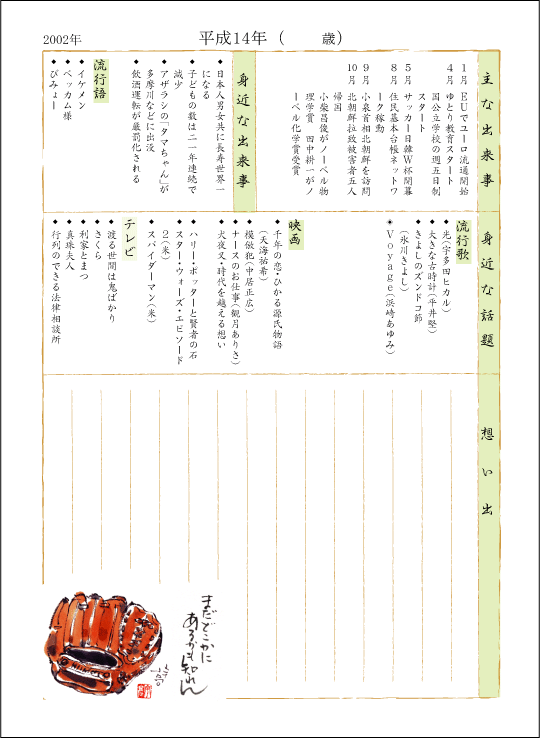 2002年
平成14年（　　歳）
主な出来事
1月 EUでユーロ流通開始
4月 ゆとり教育スタート
国公立学校の週五日制
スタート
5月 サッカー日韓W杯開幕
8月 住民基本台帳ネットワ
ーク稼動
9月 小泉首相北朝鮮を訪問
10月 北朝鮮拉致被害者五人
帰国
小柴昌俊がノーベル物
理学賞　田中耕一がノ
ーベル化学賞受賞
身近な出来事
◆日本人男女共に長寿世界一
になる
◆子どもの数は二一年連続で
減少
◆アザラシの「タマちゃん」が
多摩川などに出没
◆飲酒運転が厳罰化される
流行語
◆イケメン
◆ベッカム様
◆びみょー
身近な話題
流行歌
◆光（宇多田ヒカル）
◆大きな古時計（平井堅）
◆きよしのズンドコ節
（氷川きよし）
◆Voyage（浜崎あゆみ）
映画
◆千年の恋・ひかる源氏物語
（天海祐希）
◆模倣犯（中居正広）
◆ナースのお仕事（観月ありさ）
◆犬夜叉・時代を越える想い
◆ハリー・ポッターと賢者の石
◆スター・ウォーズ・エピソード
2（米）
◆スパイダーマン（米）
テレビ
◆渡る世間は鬼ばかり
◆さくら
◆利家とまつ
◆真珠夫人
◆行列のできる法律相談所
想い出
まだどこかに
あるかも知れん